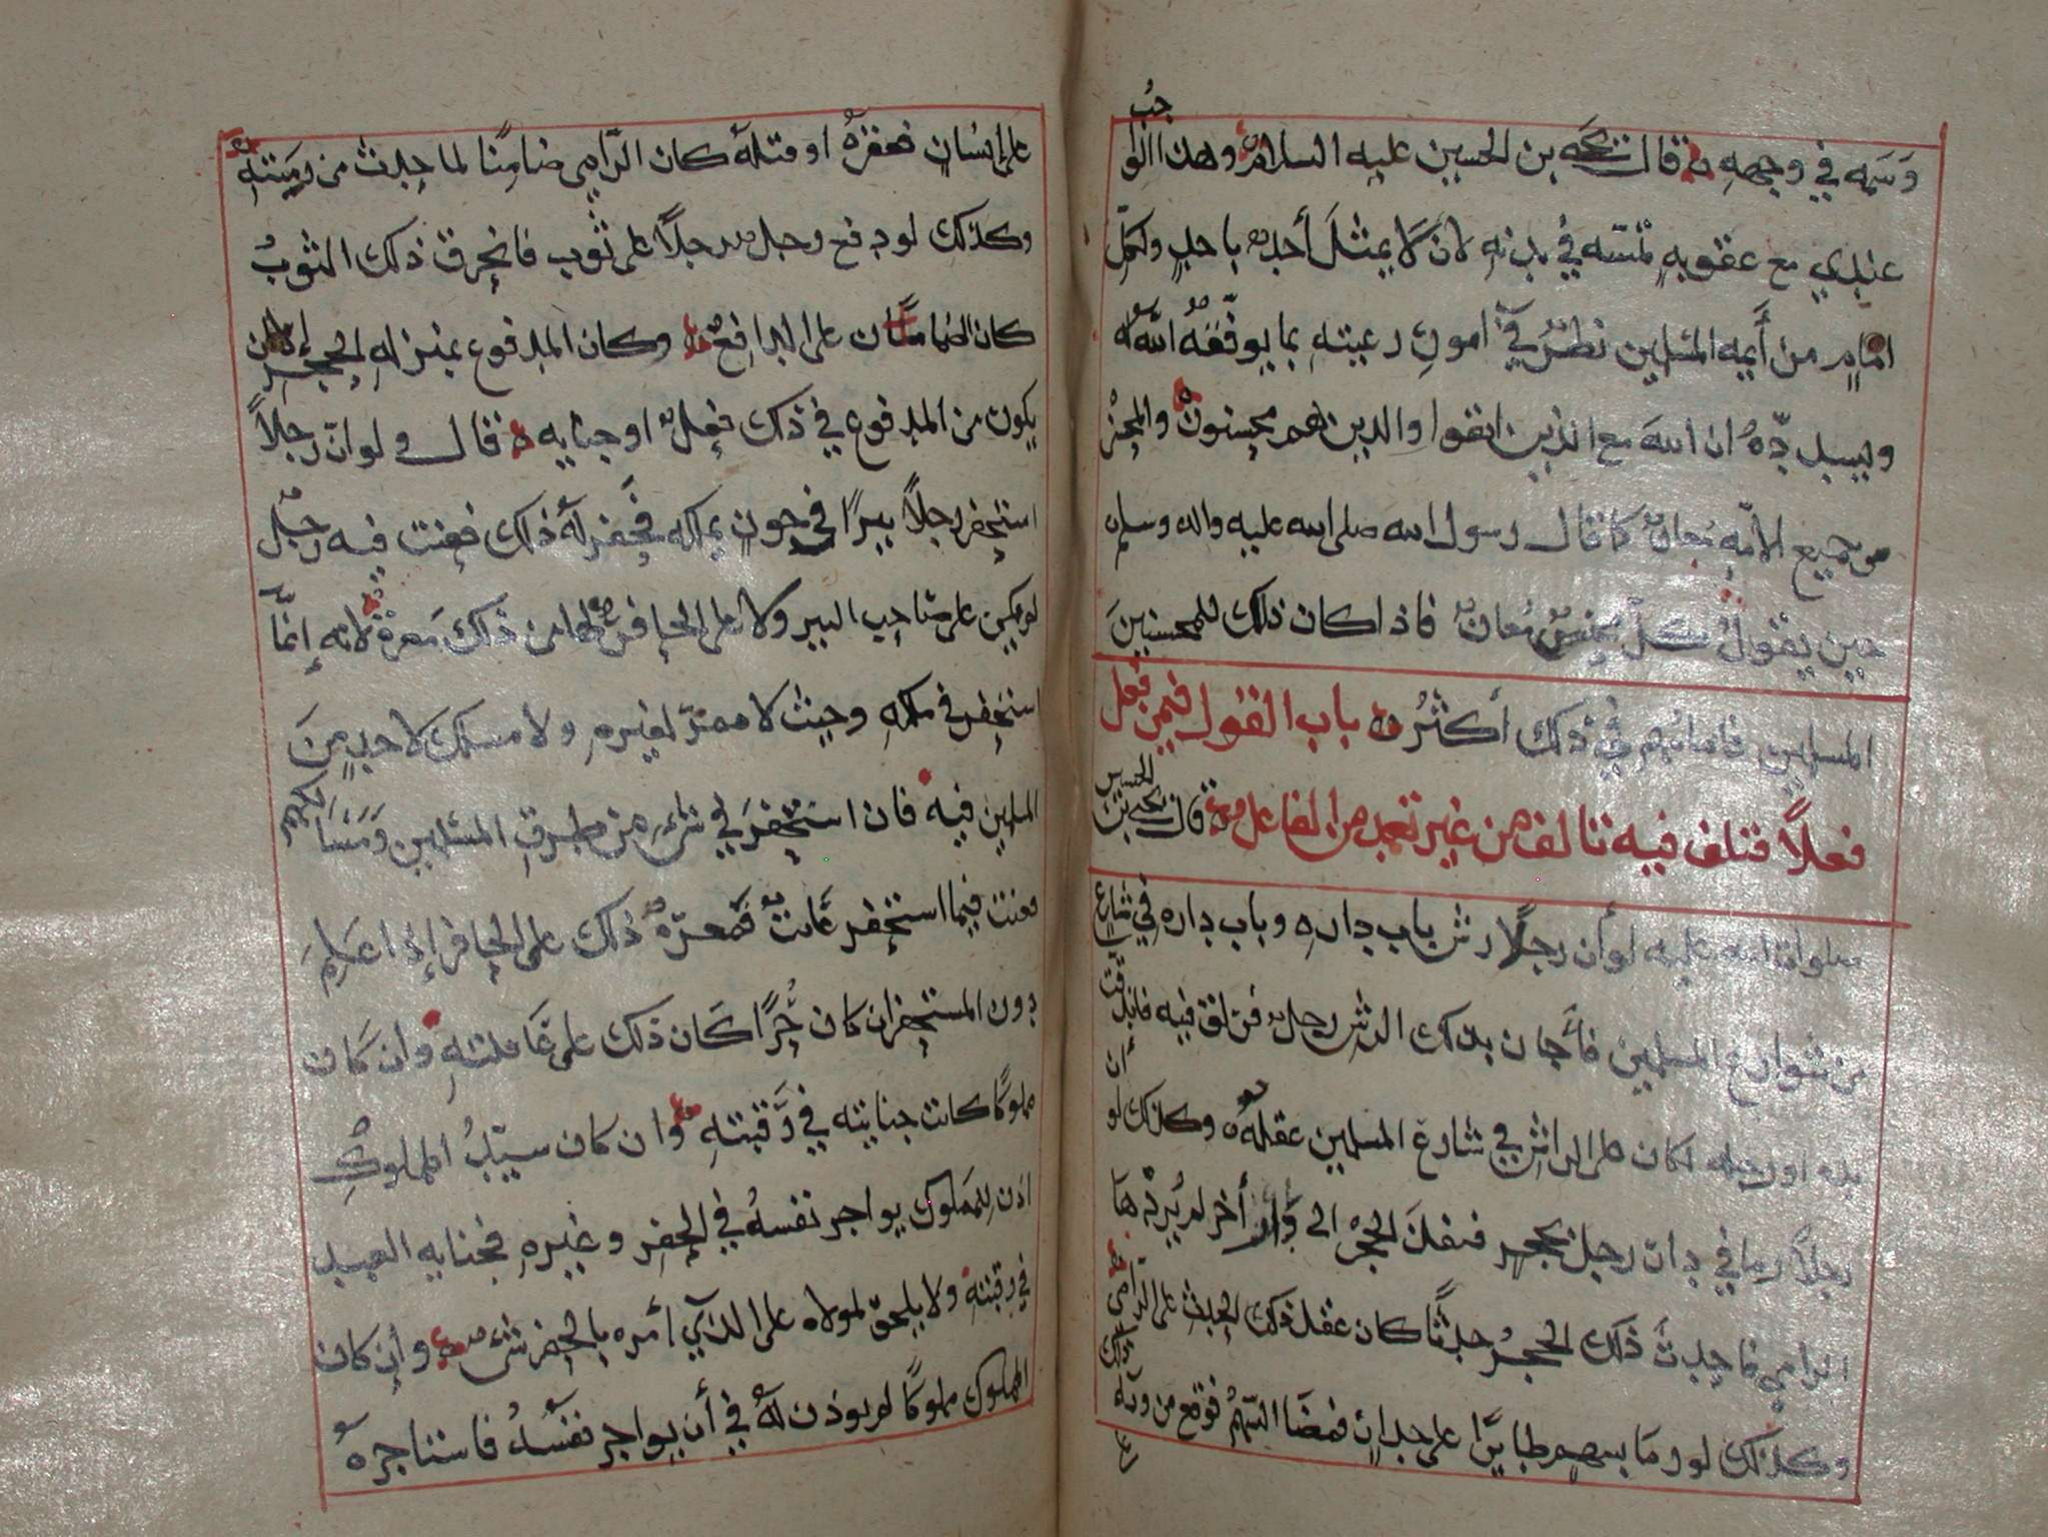 وسمه في وجهه قال يحيى بن الحسين عليه السلام وهذا الواجب
عندي مع عقوبهٍ تمسّه في بدنهِ لان لا يمثلَ أحد باحدٍ ولكلّ
امامٍ من أيمه المسلمين نظرٌ في امورِ رعيتهِ بما يوفّقهُ اللّه لهُ
ويسددّهُ ان الله مع الذين اتقوا والذين هم محسنون والمحسن
من جميع الامّهِ مُعانٌ كما قال رسول الله صلى الله عليه واله وسلم
حين يقولُ كلّ محسنٍ مُعانٌ فاذا كان ذلك للمحسنينَ
المسلمين فامامُهم في ذلك أكثرُ باب القول فيمن فعل
فعلاً فتلف فيه تالف من غير تعمدٍ من الفاعل قال يحيى بن الحسين
صلوات الله عليه لو أن رجلاً رش باب دارهِ وباب داره في شارع
من شوارع المسلمين بذلك الرش رجل فزلق فيه فاندقت
يده او رجله لكان على الراشِ في شارع المسلمين عقلهُ وكذلك لو أن
رجلاً رما في دار رجل بحجرٍ فنقلَ الحجرُ الى دار أخر لم يُردْها
الرامي فاحدثَ ذلك الحجرُ حدثًا كان عقل ذلك الحدث على الرّامى
وكذلك لو رما بسهمٍ طايرًا على جدارٍ فمضَا السّهمُ فوقع من وراء ذلك
على إنسانٍ فعقرهُ او قتلهُ كان الرّامي ضامنًا لما حدث من رميتهِ
وكذلك لو دفع رجل رجلاً على ثوب فانخرق ذلك الثوبُ
كان الضمان على الدافعِ وكان المدفوع بمنزلهِ الحجرِ إلا أن
يكون من المدفوع في ذلك فعلٌ او جنايه قال ولو انّ رجلاً
استحفر رجلاً بيرًا في حوزٍ يملكه فحفر لهُ ذلك فعنت فيه رجل
لم يكن على صاحب البير ولا على الحافر لهما من ذلك معرة لانه إنمّا
استحفر في ملكهِ وحيث لا ممرّ لغيرهِ ولا مسلك لاحدٍ منَ
المسلمين فيه فان استحفرَ في شيءٍ من طرقِ المسلمين ومَسَالكهم
فعنت فيما استحفر عانتٌ فمعرّهُ ذلك على الحافر إذا علمَ
دون المستحفر ان كان حُرًا كان ذلك على عاقلتهِ وان كان
مملوكًا كانت جنايته في رقبتهِ وان كان سيّدُ المملوكِ
اذن للمملوك يواجر نفسهُ في الحفرِ وغيرهِ فجنايه العبد
في رقبتهِ ولا يلحق لمولاه على الذي أمره بالحفر شيء وإن كان
المملوك مملوكًا لم يوذن لهُ في أن يواجر نفسهُ فاستاجره